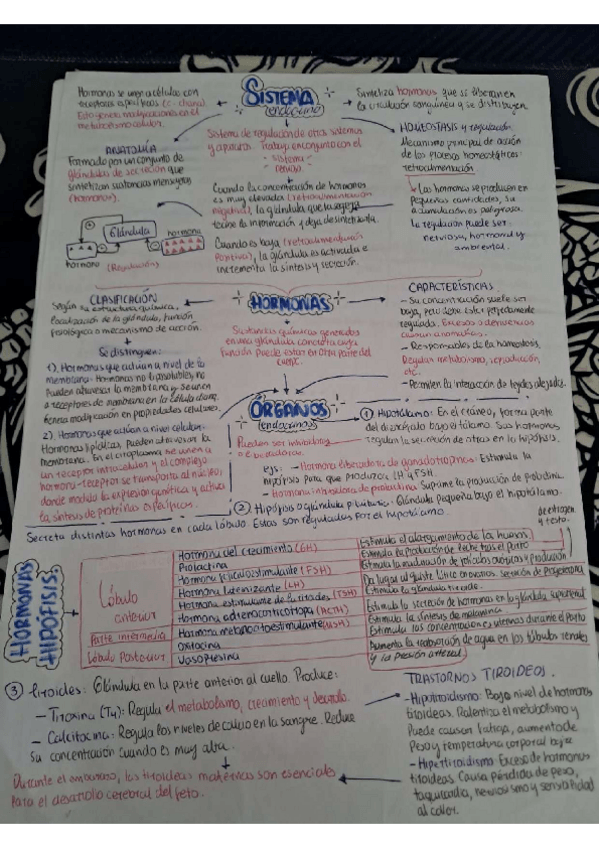 SISTEMA
endocrino
Hormonas se unen a células con
receptores específicos (c. diana)
Esto genera modificaciones en el
metabolismo celular.
Sintetiza hormonas que se liberan en
la circulación sanguínea y se distribuyen.
ANATOMÍA
Formado por un conjunto de
glándulas de secreción que
sintetizan sustancias mensajeras
(hormonas).
Glándula
hormona
hormona
(Regulación)
Sistema de regulación de otros sistemas
y aparatos. Trabaja en conjunto con el
- sistema -
nervioso.
Cuando la concentración de hormonas
es muy elevada (retroalimentación
negativa), la glándula que la segrega
recibe la información y deja de sintetizarla.
Cuando es baja (retroalimentación
positiva), la glándula es activada e
incrementa la síntesis y secreción.
HOMEOSTASIS y regulación
Mecanismo principal de acción
de los procesos homeostáticos:
retroalimentación
Las hormonas se producen en
pequeñas cantidades, su
acumulación es peligrosa.
la regulación puede ser
nerviosa, hormonal y
ambiental.
HORMONAS
Sustancias químicas generadas
en una glándula concreta cuya
función puede estar en otra parte del
cuerpo.
CLASIFICACIÓN
Según su estructura química,
localización de la glándula, función
fisiológica o mecanismo de acción.
Se distinguen:
1). Hormonas que actúan a nivel de la
membrana. Hormonas no liposolubles, no
pueden atravesar la membrana y se unen
a receptores de membrana en la célula diana,
genera modificación en propiedades celulares.
2). Hormonas que actúan a nivel celular.
Hormonas lipídicas, pueden atravesar la
membrana. En el citoplasma se unen a
un receptor intracelular y el complejo
hormona-receptor se transporta al núcleo,
donde modula la expresión genética y activa
la síntesis de proteínas específicas.
CARACTERÍSTICAS
- Su concentración suele ser
baja, pero debe estar perfectamente
regulada. Excesos o deficiencias
causan anomalías.
- Responsables de la homeostasis.
Regulan metabolismo, reproducción,
etc.
- Permiten la interacción de tejidos alejados.
ÓRGANOS
endocrinos
Pueden ser inhibidoras
o liberadoras.
1 Hipotálamo: En el cráneo, forma parte
del diencéfalo bajo el tálamo. Sus hormonas
regulan la secreción de otras en la hipófisis.
ejs: - Hormona liberadora de gonadotropinas: Estimula la
hipófisis para que produzca LH y FSH.
- Hormona inhibidora de prolactina: Suprime la producción de prolactina.
2 Hipófisis o glándula pituitaria: Glándula pequeña bajo el hipotálamo.
Secreta distintas hormonas en cada lóbulo. Estas son reguladas por el hipotálamo.
HORMONAS
HIPÓFISIS.
Lóbulo
anterior
Parte intermedia
Lóbulo Posterior
Hormona del crecimiento (GH)
Prolactina
Hormona foliculoestimulante (FSH)
Hormona luteinizante (LH)
Hormona estimulante de la tiroides (TSH)
Hormona adrenocorticotropa (ACTH)
Hormona melanocitoestimulante (MSH)
Oxitocina
Vasopresina
de estrógenos
y testo.
Estimula el alargamiento de los huesos
Estimula la producción de leche tras el parto
Estimula la maduración de folículos ováricos y producción
Da lugar al cuerpo lúteo en ovarios. Secreción de progesterona
Estimula la glándula tiroides
Estimula la secreción de hormonas en la glándula suprarrenal
Estimula la síntesis de melanina
Estimula las contracciones uterinas durante el parto
Aumenta la reabsorción de agua en los túbulos renales
y la presión arterial
3 tiroides: Glándula en la parte anterior al cuello. Produce:
- Tiroxina (T4): Regula el metabolismo, crecimiento y desarrollo.
- Calcitocina: Regula los niveles de calcio en la sangre. Reduce
su concentración cuando es muy alta.
Durante el embarazo, las tiroideas maternas son esenciales
para el desarrollo cerebral del feto.
TRASTORNOS TIROIDEOS.
- Hipotiroidismo: Bajo nivel de hormonas
tiroideas. Ralentiza el metabolismo y
puede causar fatiga, aumento de
peso y temperatura corporal baja
- Hipertiroidismo: Exceso de hormonas
tiroideas. Causa pérdida de peso,
taquicardia, nerviosismo y sensibilidad
al calor.